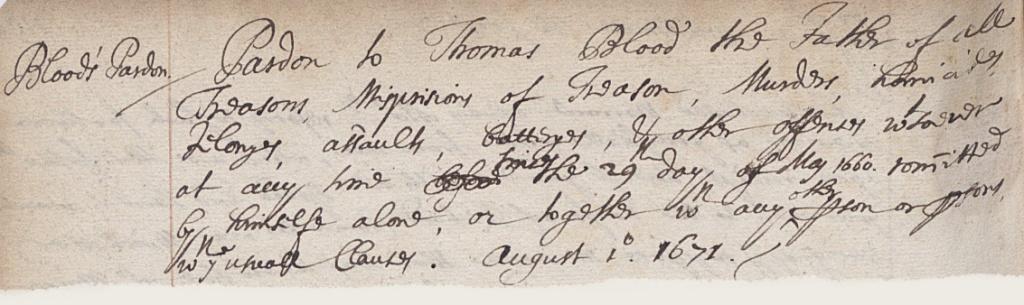 Bloods Pardon. Pardon to Thomas Blood the Father of all
Treasons, Misprisions of Treason, Murders, homicides,
Felonyes, assaults, batteryes, & other offenses wtsoever
at any time before since the 29th day of May 1660. com̃itted
by himselfe alone, or together wth any other p̱son or p̱sons,
wth ye usuall Clauses. August 1o. 1671.